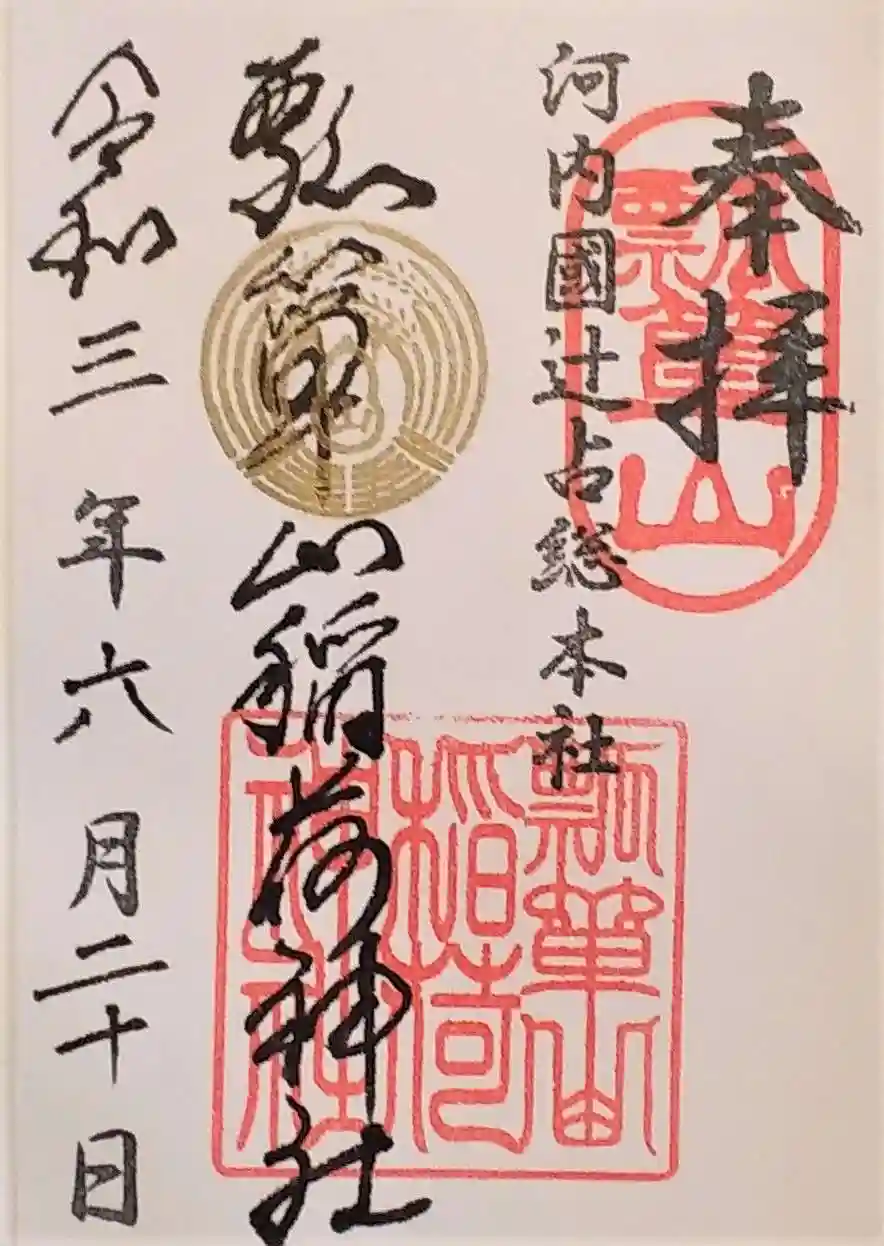 奉拝
河内國辻占総本社
瓢箪山稲荷神社
令和三年六月二十日
瓢箪山
瓢箪山
稲荷
神社